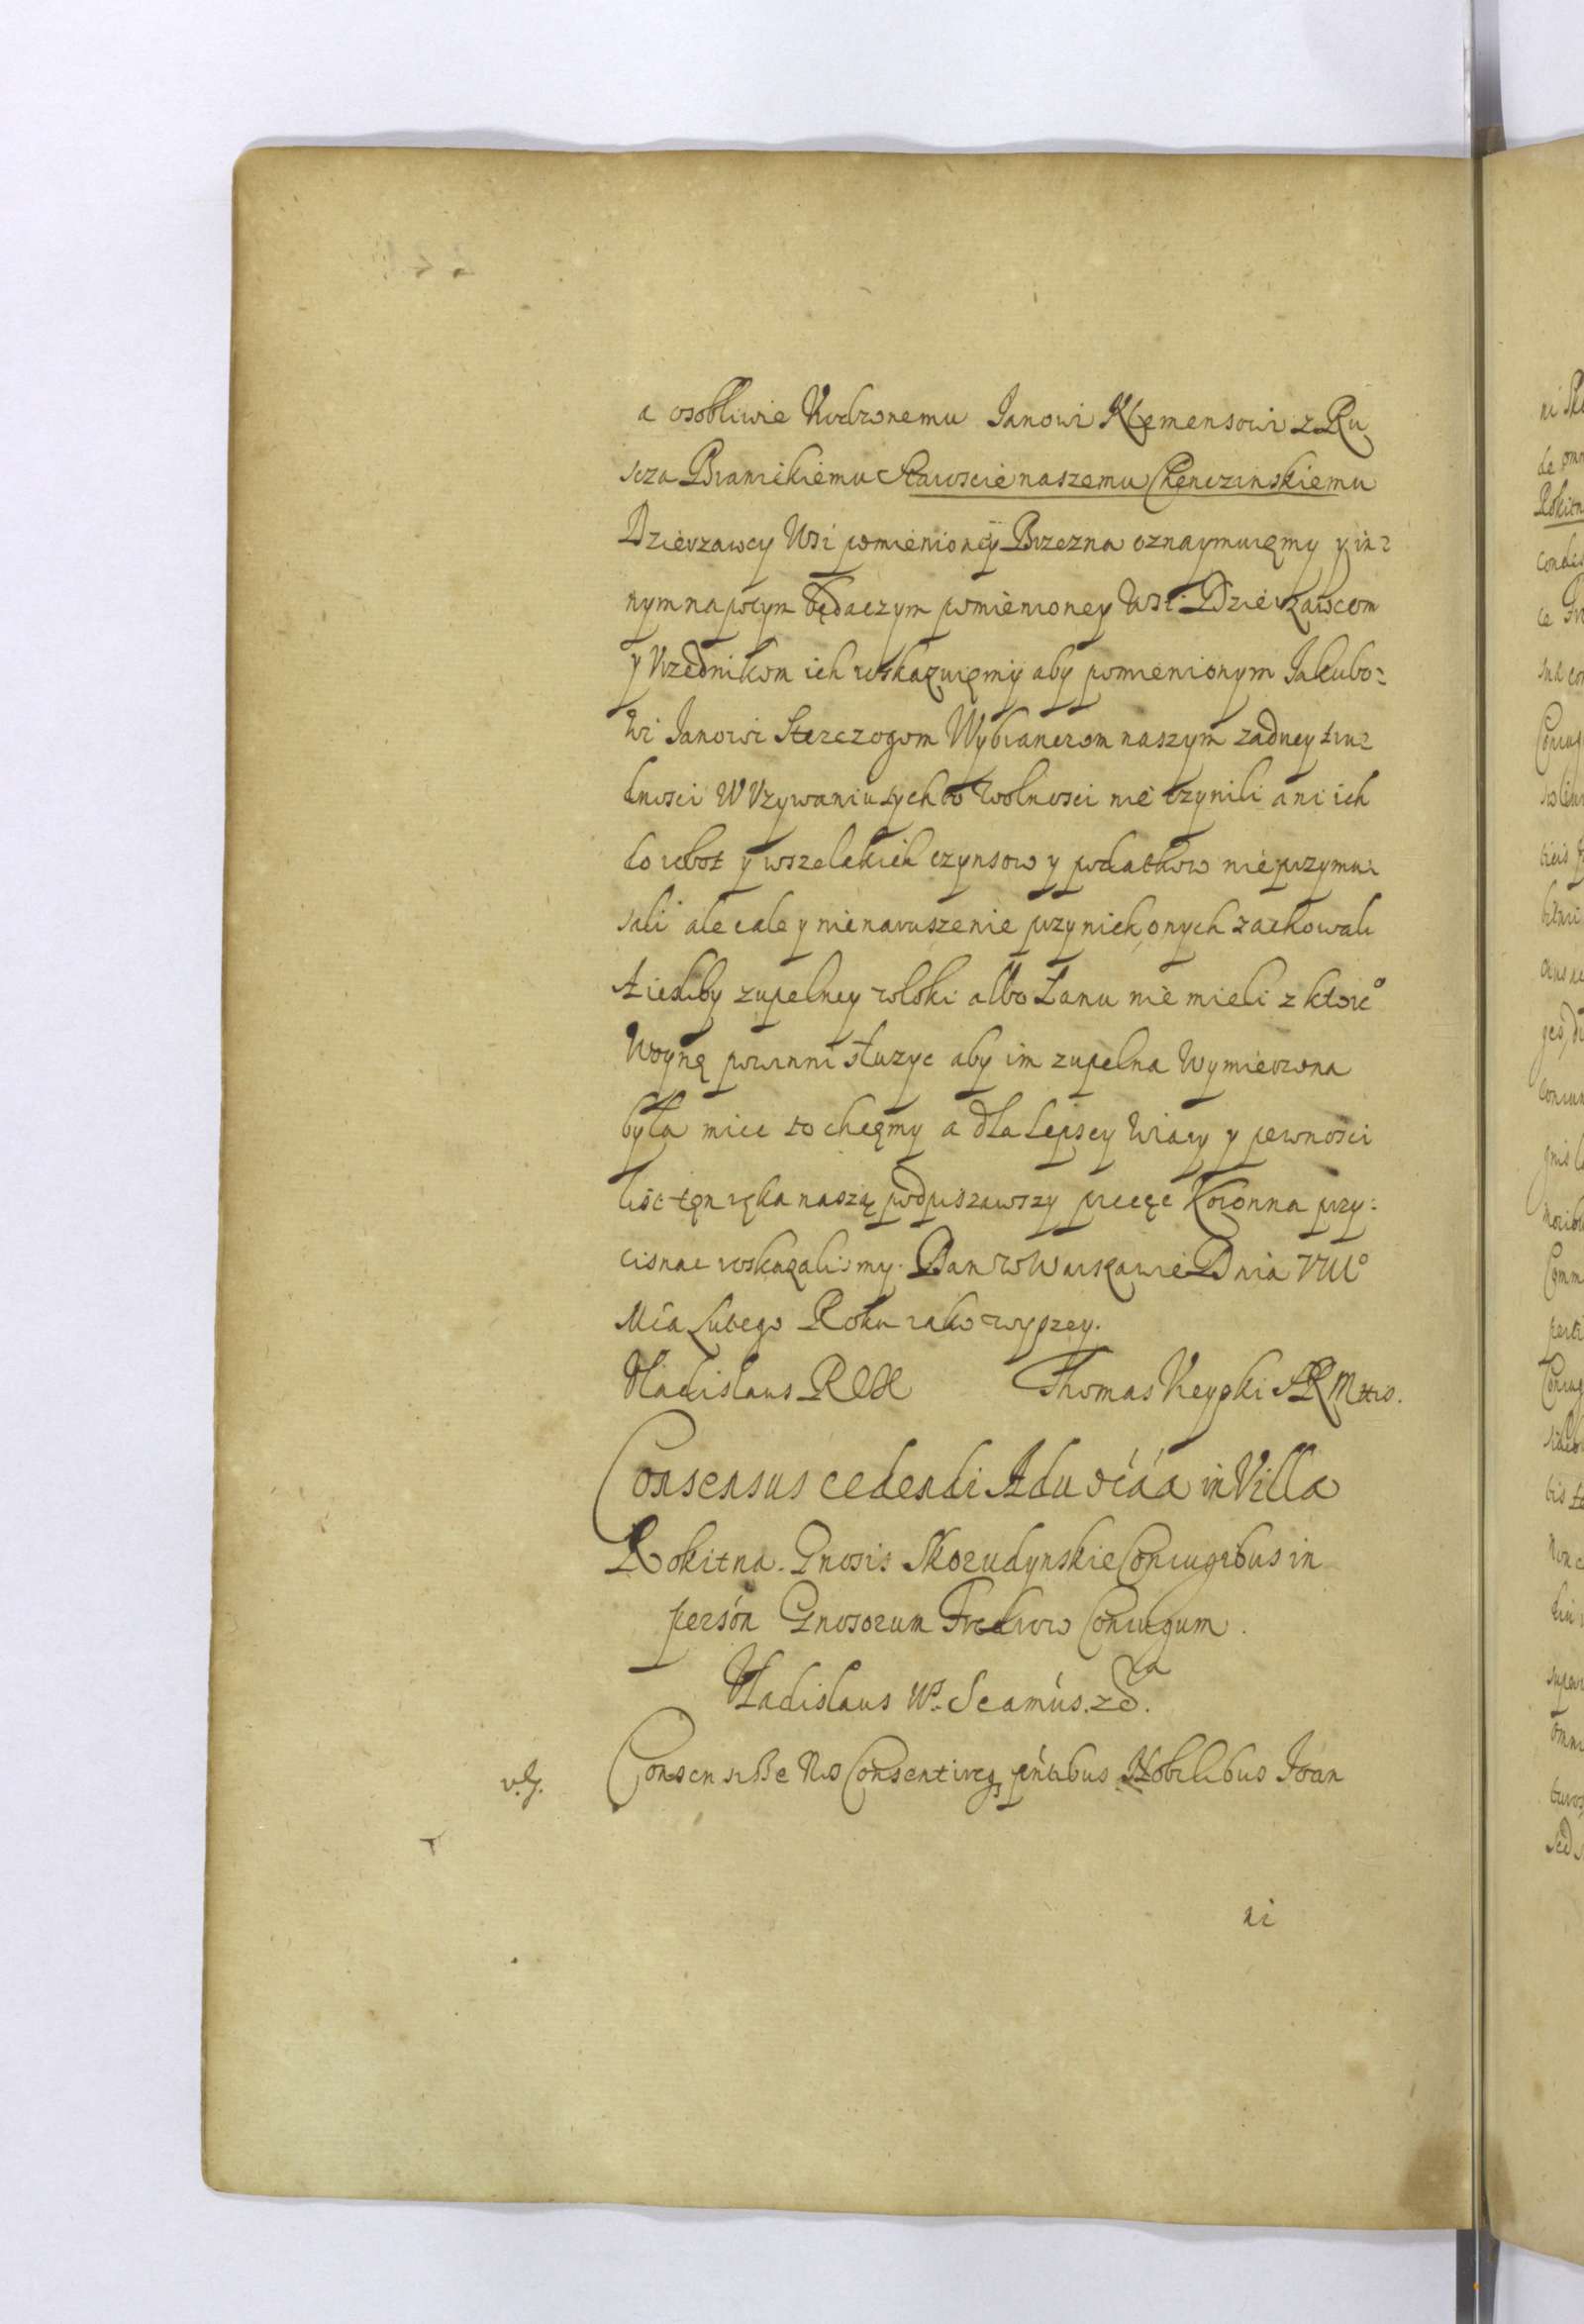 a osobliwie Urodzonemu Janowi Klemensowi z Ru
scza Branickiemu Staroscie naszemu Chęncinskiemu
Dzierzawcy Wsi pomienioney Brzezna oznaymuięmy y in:
nym napotym będaczym pomienioney Wsi Dzierzawcom
y Vrzędnikom ich roskazuięmy aby pomienionym Jakubo:
wi Janowi Sterczogom Wybrancom naszym zadney tru:
dnosci W Vzywaniu tych to wolnosci nie czynili ani ich
do robot y wszelakich czynsow y podatkow nie przymu:
sali ale cale y nienaruszenie przy nich onych zachowali
A iesliby zupelney wloki albo Łanu nie mieli z ktoreº
Woynę powinni słuzyc aby im zupelna Wymierzona
była miec to chcęmy a dla Lepszey Wiary y pewnosci
list tęn ręka naszą podpisawszy pieczęc Koronna przy:
cisnac roskazalismy. Dan w Warszawie Dnia VIIIº
Mca Lutego Roku iako wyszey.
Vladislaus REX Thomas Vieyski SRMttis.
Consensus cedendi Aduocáá in Villa
Rokitna. Gnosis Skorudynskie Coniugibus in
persón Gnosorum Fredrow Coniugum.
Vladislaus IVs. Seamús. zd.
v. g. Consensisse Nos Consentireqȝ pńtibus Nobilibus Ioan
ni